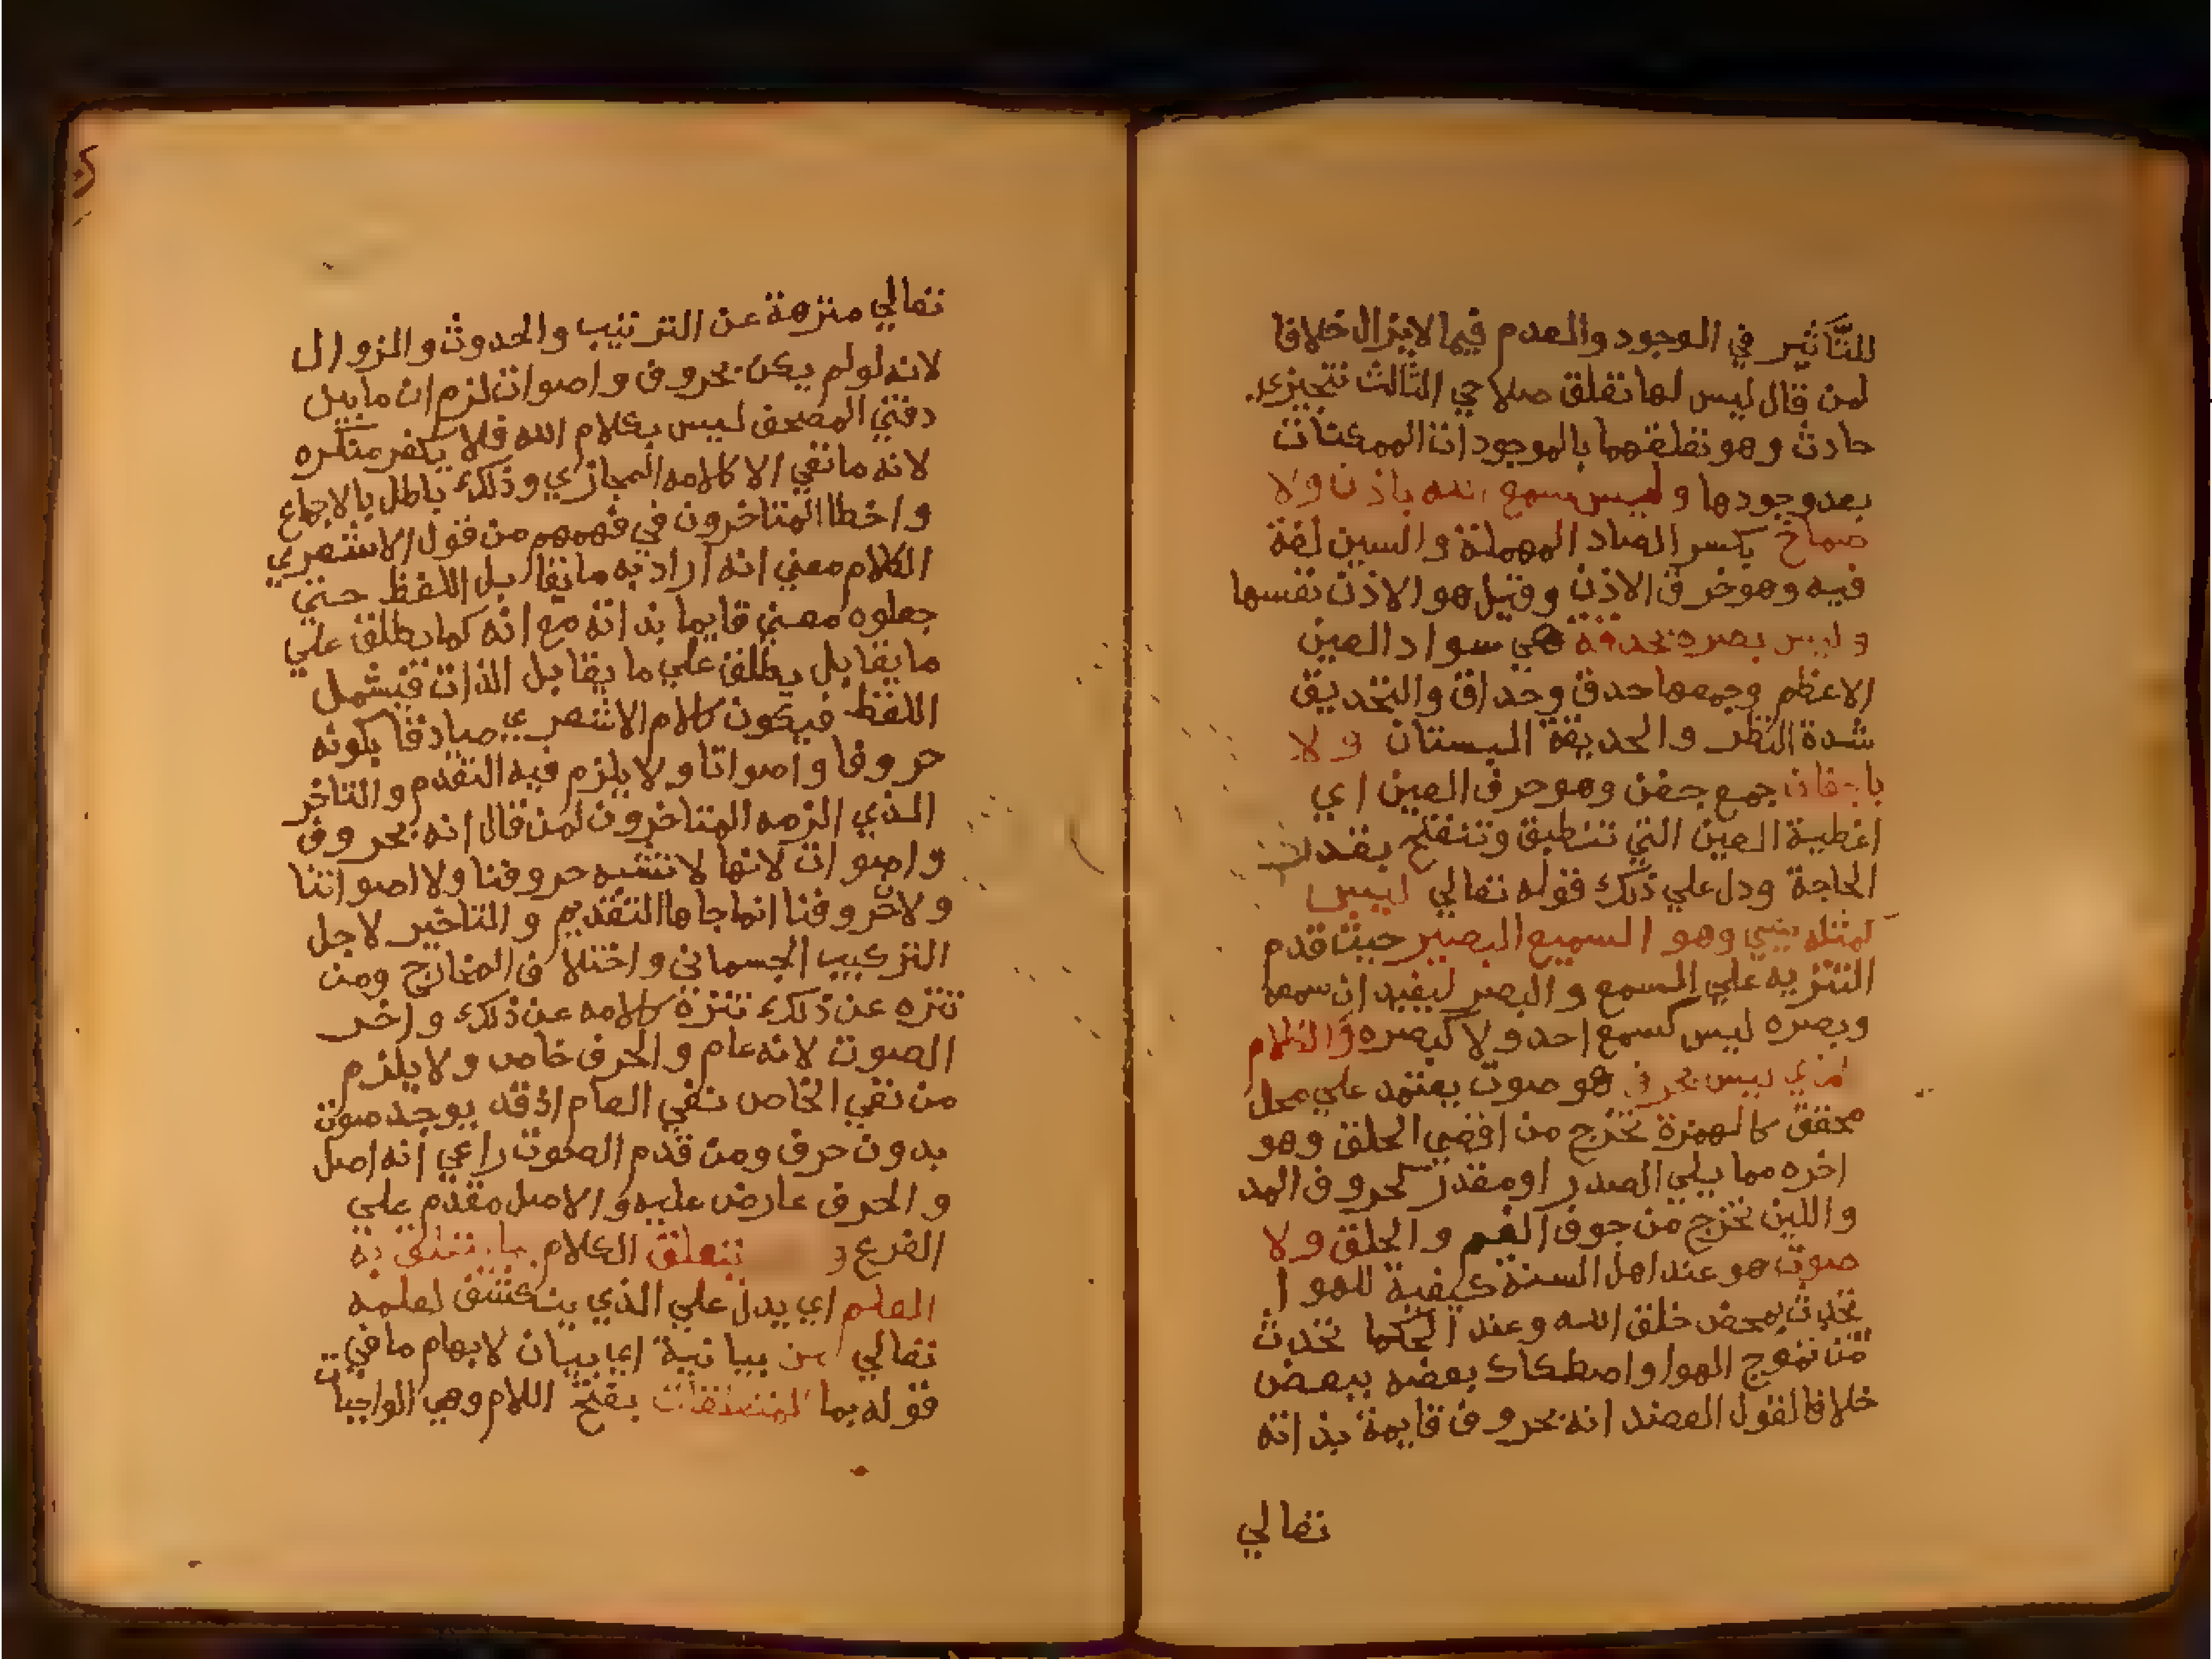 للتَّأثير في الوجود والعدم فيما لايزال خلافا
لمن قال ليس لها تعلق صلاحي الثالث تنجيزي
حادث وهو تعلقهما بالموجودات الممكنات
بعد وجودها وليس سمع الله باذن ولا
صماخ بكسر الصاد المهملة والسين لغة
فيه وهو خرق الاذن وقيل هو الاذن نفسها
وليس بصره بحدقة هي سواد العين
الاعظم وجمعها حدق وحداق والتحديق
شدة النظر والحديقة البستان ولا
باجفان جمع جفن وهو حرف العين اي
اغطية العين التي تنطبق وتنفتح بقدر
الحاجة ودل علي ذلك قوله تعالي ليس
كمثله شيي وهو السميع البصير حيث قدم
التنزيه علي السمع والبصر ليفيد ان سمعه
وبصره ليس كسمع احد ولا كبصره والكلام
الذي ليس بحرف هو صوت يعتمد علي محل
محقق كالهمزة تخرج من اقصي الحلق وهو
اخره مما يلي الصدر او مقدر كحروف المد
واللين تخرج من جوف الفم والحلق ولا
صوت هو عند اهل السنة كيفية للهوا
تحدث بمحض خلق الله وعند الحكما تحدث
من تموج الهوا واصطكاك بعضه ببعض
خلافا لقول العضد انه بحروف قايمة بذاته
تعالي
تعالي منزهة عن الترتيب والحدوث والزوال
لانه لولم يكن بحروف واصوات لزم ان مابين
دفتي المصحف ليس بكلام الله فلا يكفر منكره
لانه مانفي الا كلامه المجازي وذلك باطل بالاجماع
واخطا المتاخرون في فهمهم من قول الاشعري
الكلام معني انه اراد به مايقابل اللفظ حتي
جعلوه معني قايما بذاته مع انه كما يطلق علي
مايقابل يطلق علي ما يقابل الذات فيشمل
اللفظ فيكون كلام الاشعري صادقا بكونه
حروفا واصواتا ولا يلزم فيه التقدم والتاخر
الذي الزمه المتاخرون لمن قال انه بحروف
واصوات لانها لا تشبه حروفنا ولا اصواتنا
ولان حروفنا انما جاها التقديم والتاخير لاجل
التركيب الجسماني واختلاف المخارج ومن
تنزه عن ذلك تنزه كلامه عن ذلك واخر
الصوت لانه عام والحرف خاص ولا يلزم
من نفي الخاص نفي العام اذ قد يوجد صوت
بدون حرف ومن قدم الصوت راعي انه اصل
والحرف عارض عليه والاصل مقدم علي
الفرع و تتعلق الكلام بما تتعلق به
العلم اي يدل علي الذي ينكشف لعلمه
تعالي من بيانية اي بيان لابهام ما في
قوله بما المتعلقات بفتح اللام وهي الواجبات